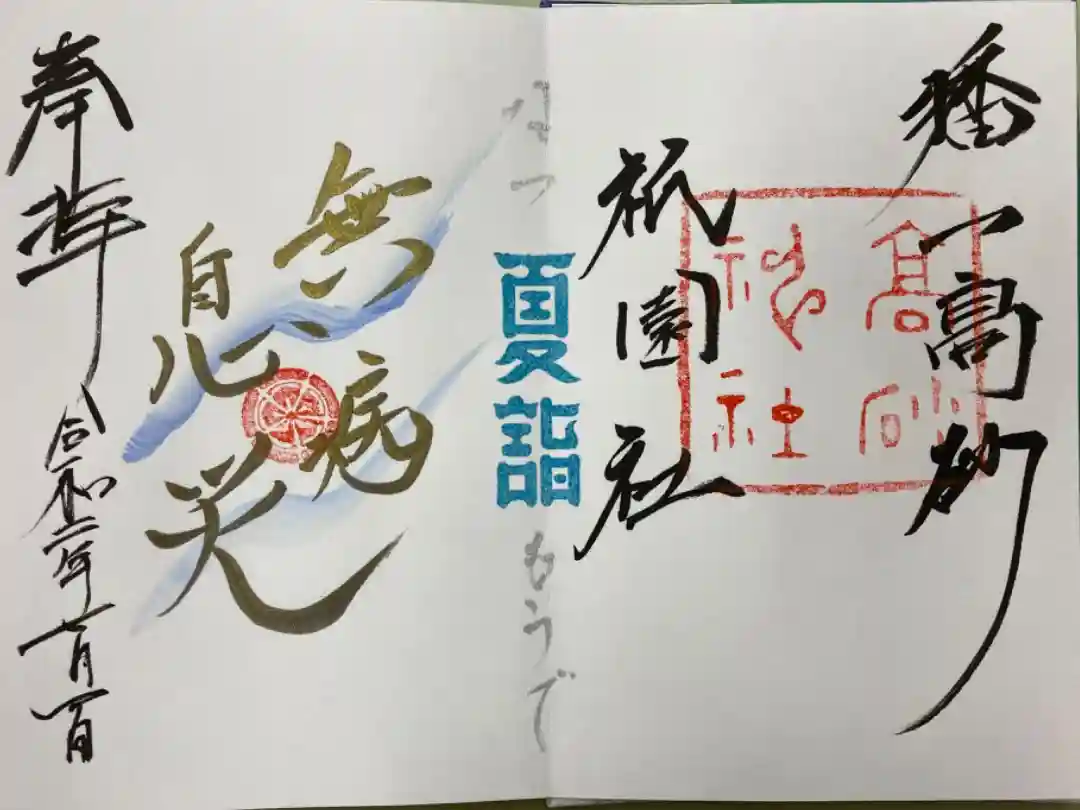 播
高砂
祇園社
高砂
神社
なつ
夏詣
もうで
無病
息災
奉拝
令和二年七月一日